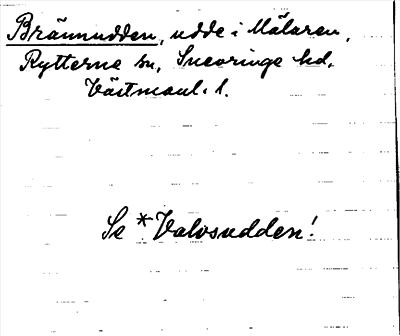 Brännudden, udde i Mälaren,
Rytterne sn, Snevringe hd,
Västmanl. l.
Se *Valvsudden!